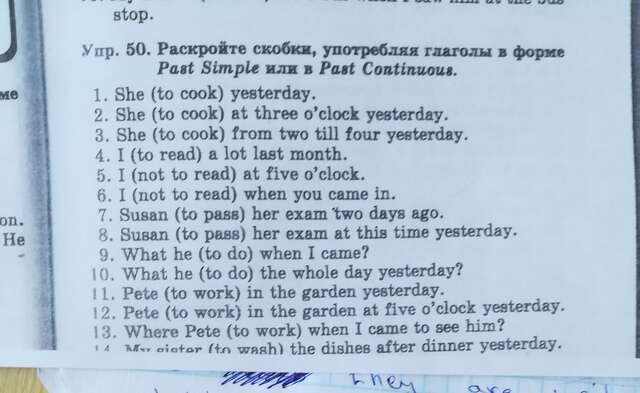 stop.
Упр. 50. Раскройте скобки, употребляя глаголы в форме
Past Simple или в Past Continuous.
1. She (to cook) yesterday.
2. She (to cook) at three o'clock yesterday.
3. She (to cook) from two till four yesterday.
4. I (to read) a lot last month.
5. I (not to read) at five o'clock.
6. I (not to read) when you came in.
7. Susan (to pass) her exam two days ago.
8. Susan (to pass) her exam at this time yesterday.
9. What he (to do) when I came?
10. What he (to do) the whole day yesterday?
11. Pete (to work) in the garden yesterday.
12. Pete (to work) in the garden at five o'clock yesterday.
13. Where Pete (to work) when I came to see him?
14. My sister (to wash) the dishes after dinner yesterday.
ме
on.
He
they are